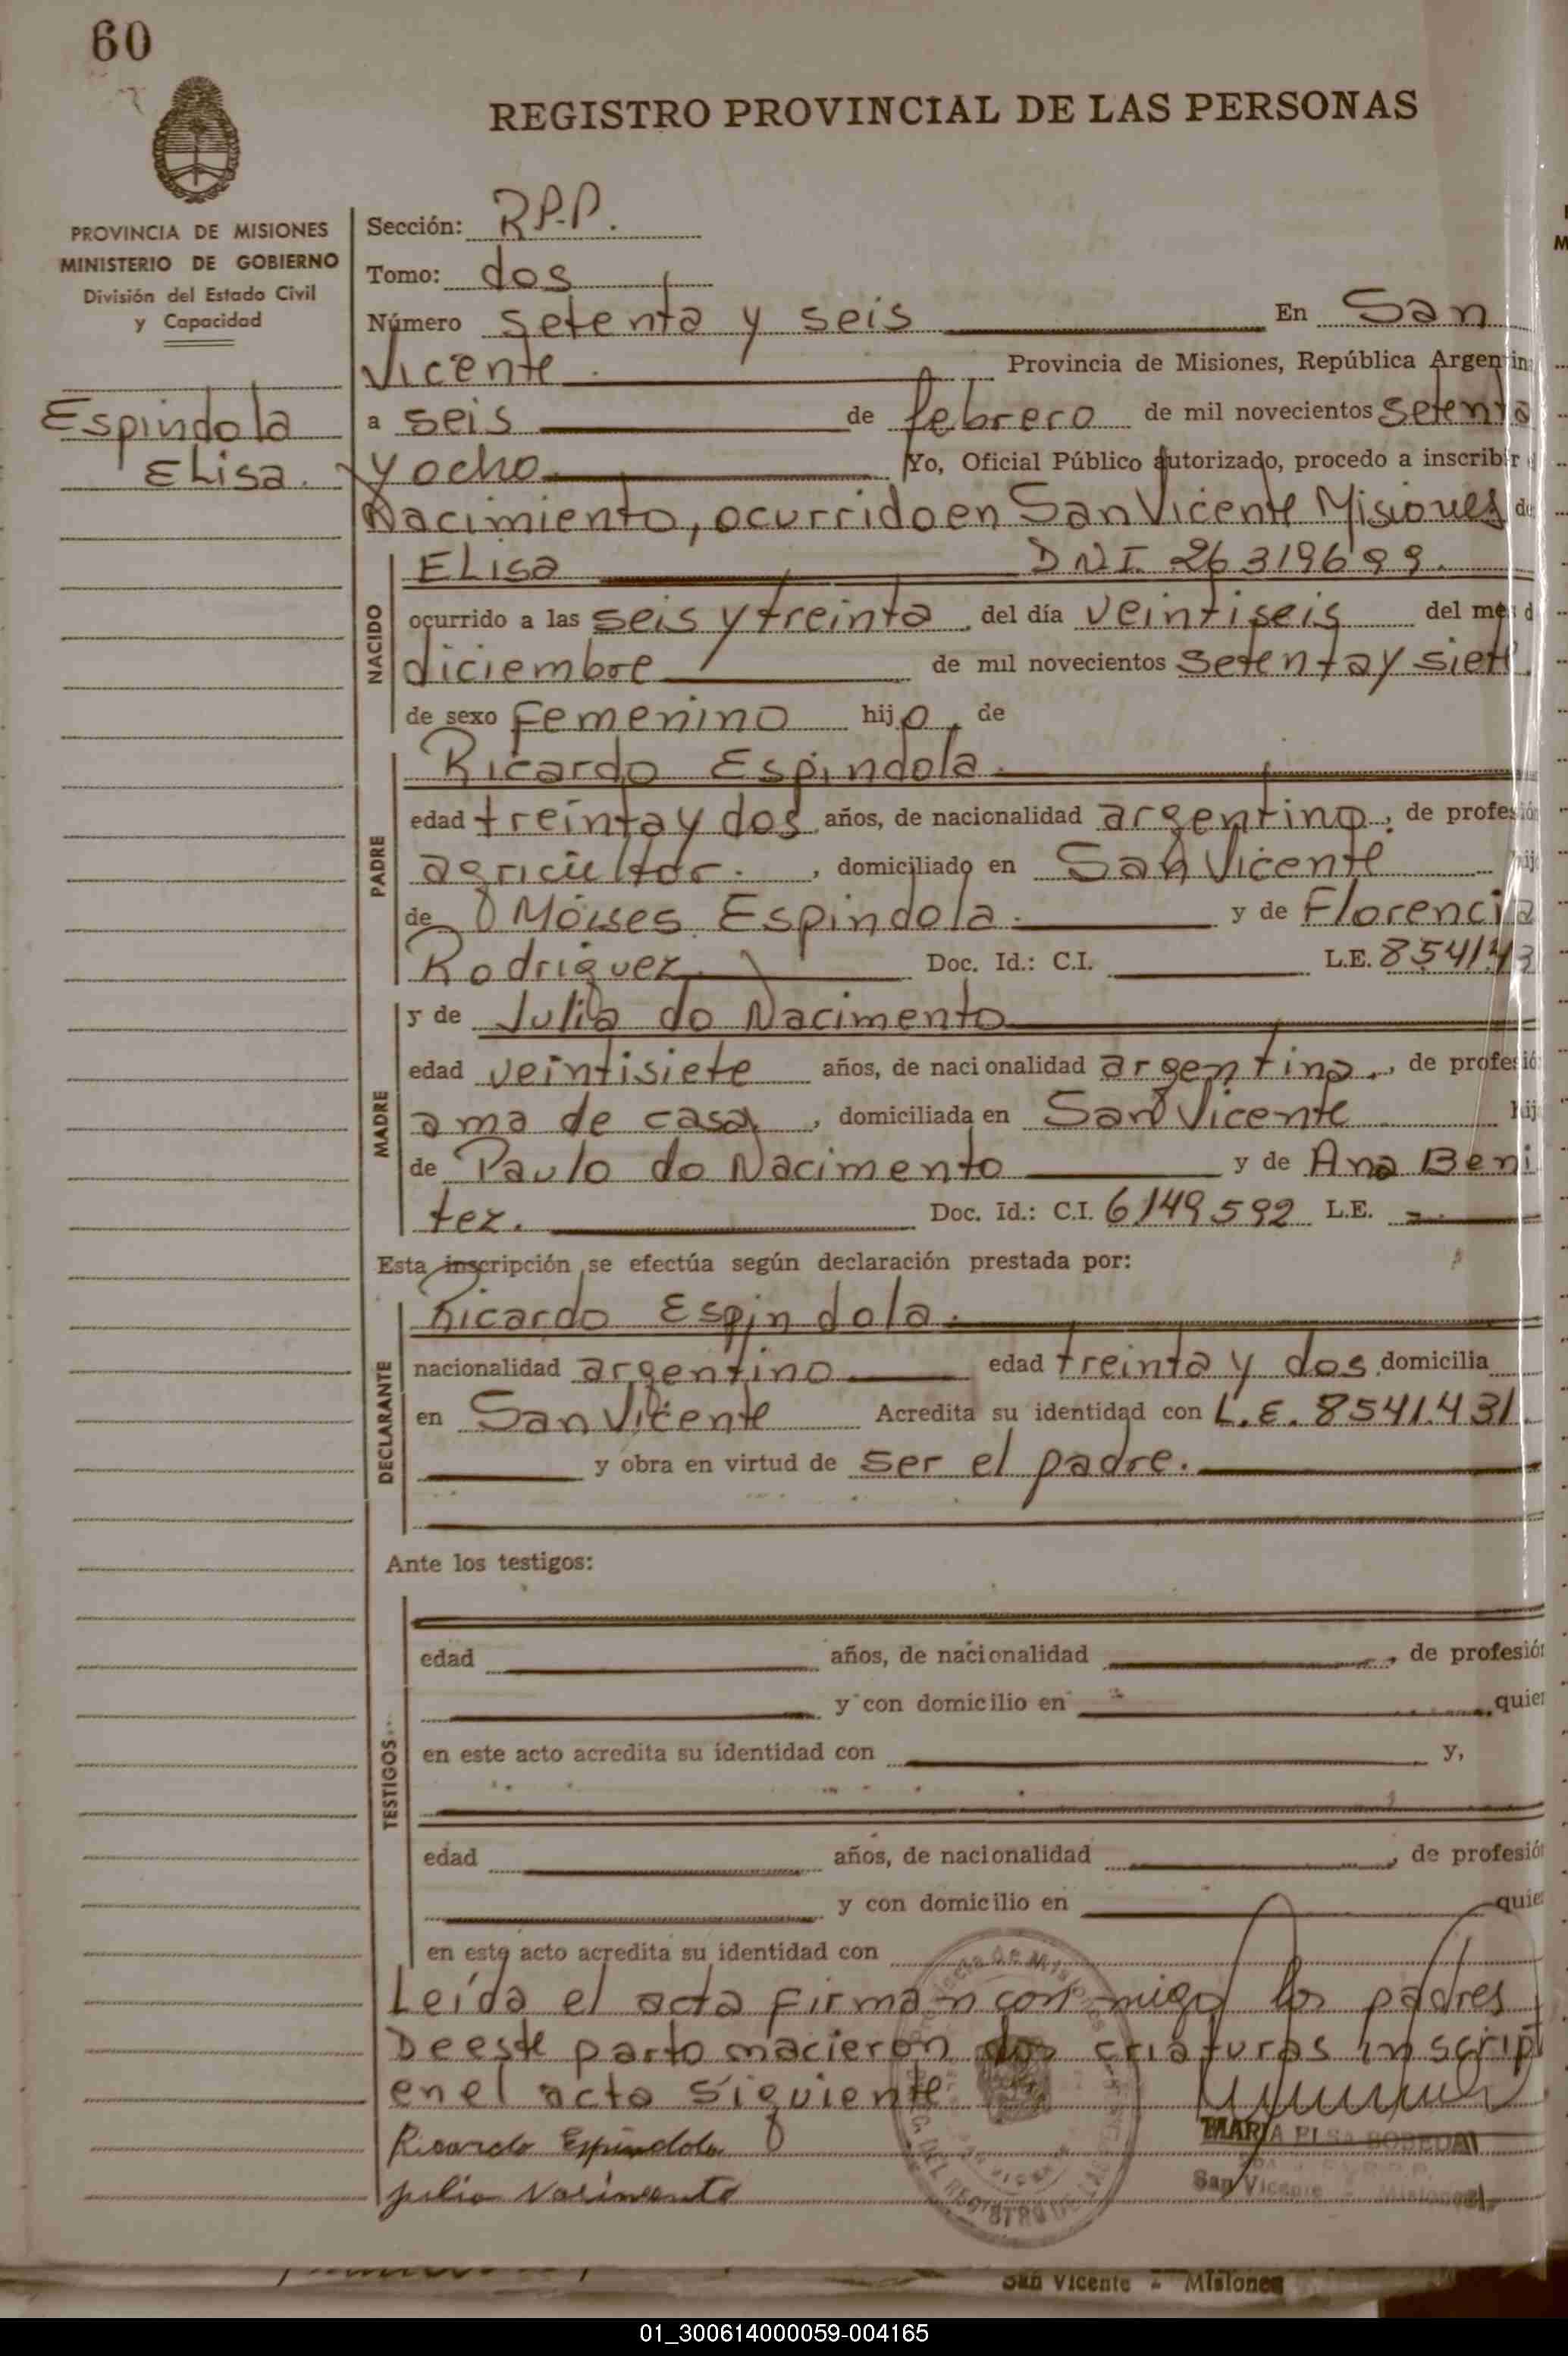 60
REGISTRO PROVINCIAL DE LAS PERSONAS
PROVINCIA DE MISIONES
MINISTERIO DE GOBIERNO
División del Estado Civil
y Capacidad
Espindola
Elisa.
Sección: R.P.P.
Tomo: dos
Número setenta y seis En San
Vicente Provincia de Misiones, República Argentin
a seis de febrero de mil novecientos setenta
y ocho Yo, Oficial Público autorizado, procedo a inscribir
Nacimiento, ocurrido en San Vicente Misiones de
NACIDO
Elisa DNI 26319699.
ocurrido a las seis y treinta del día veintiseis del mes d
diciembre de mil novecientos setenta y siete
de sexo femenino hijo, de
PADRE
Ricardo Espindola
edad treinta y dos años, de nacionalidad argentino, de profesión
agricultor. , domiciliado en San Vicente hij
de Moises Espindola. y de Florencia
Rodriguez Doc. Id.: C.I. L.E. 854143
MADRE
y de Julia do Nacimento
edad veintisiete años, de nacionalidad argentina, de profesió
ama de casa, domiciliada en San Vicente hij
de Paulo do Nacimento y de Ana Beni
tez. Doc. Id.: C.I. 6149592 L.E. -
Esta inscripción se efectúa según declaración prestada por:
DECLARANTE
Ricardo Espindola.
nacionalidad argentino edad treinta y dos domicilia
en San Vicente Acredita su identidad con L.E. 8541431.
y obra en virtud de ser el padre.
Ante los testigos:
TESTIGOS
edad años, de nacionalidad , de profesión
y con domicilio en quien
en este acto acredita su identidad con y,
edad años, de nacionalidad , de profesión
y con domicilio en quie
en este acto acredita su identidad con
Leída el acta firman con migo los padres
De este parto nacieron dos criaturas inscript
en el acta siguiente
Ricardo Espindola
Julia Nacimento
MARIA ELSA
San Vicente - Misiones
San Vicente - Misiones
01_300614000059-004165